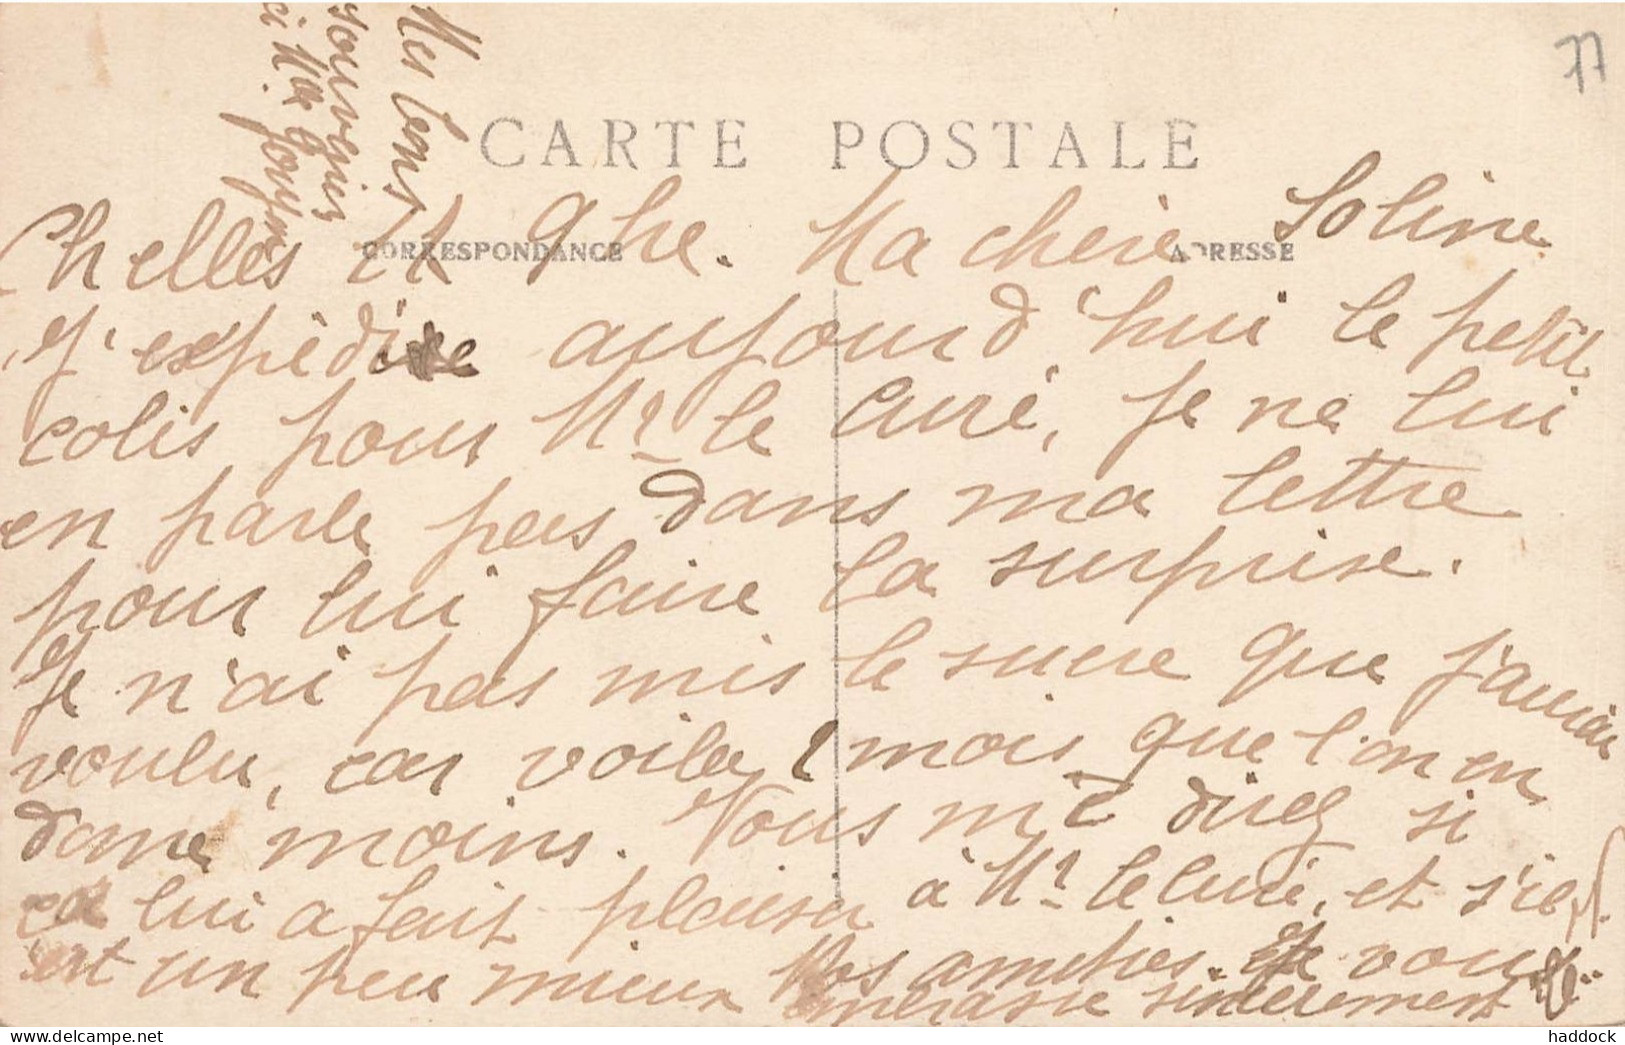 77
Mes bons
souvenirs
CARTE POSTALE
CORRESPONDANCE
ADRESSE
Chelles le 9 bre. Ma chère Soline
J'expédie aujourd'hui le petit
colis pour Mr le Curé, Je ne lui
en parle pas dans ma lettre
pour lui faire la surprise.
Je n'ai pas mis le sucre que j'aurais
voulu, car voila 1 mois que l'on en
donne moins. Vous me direz si
ça lui a fait plaisir à Mr le Curé, et s'il
est un peu mieux Mes amitiés. Je vous
embrasse sincèrement
haddock